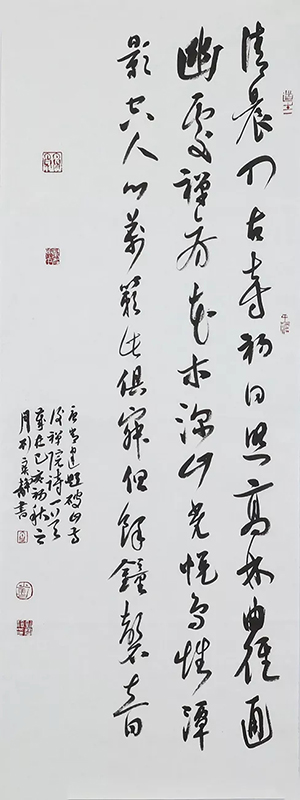 清晨入古寺初日照高林曲徑通
幽處禪房花木深山光悦鳥性潭
影空人心萬籟此俱寂但餘鐘磬音
唐常建題破山寺
後禪院詩一首
歲在己亥初秋之
月 静書